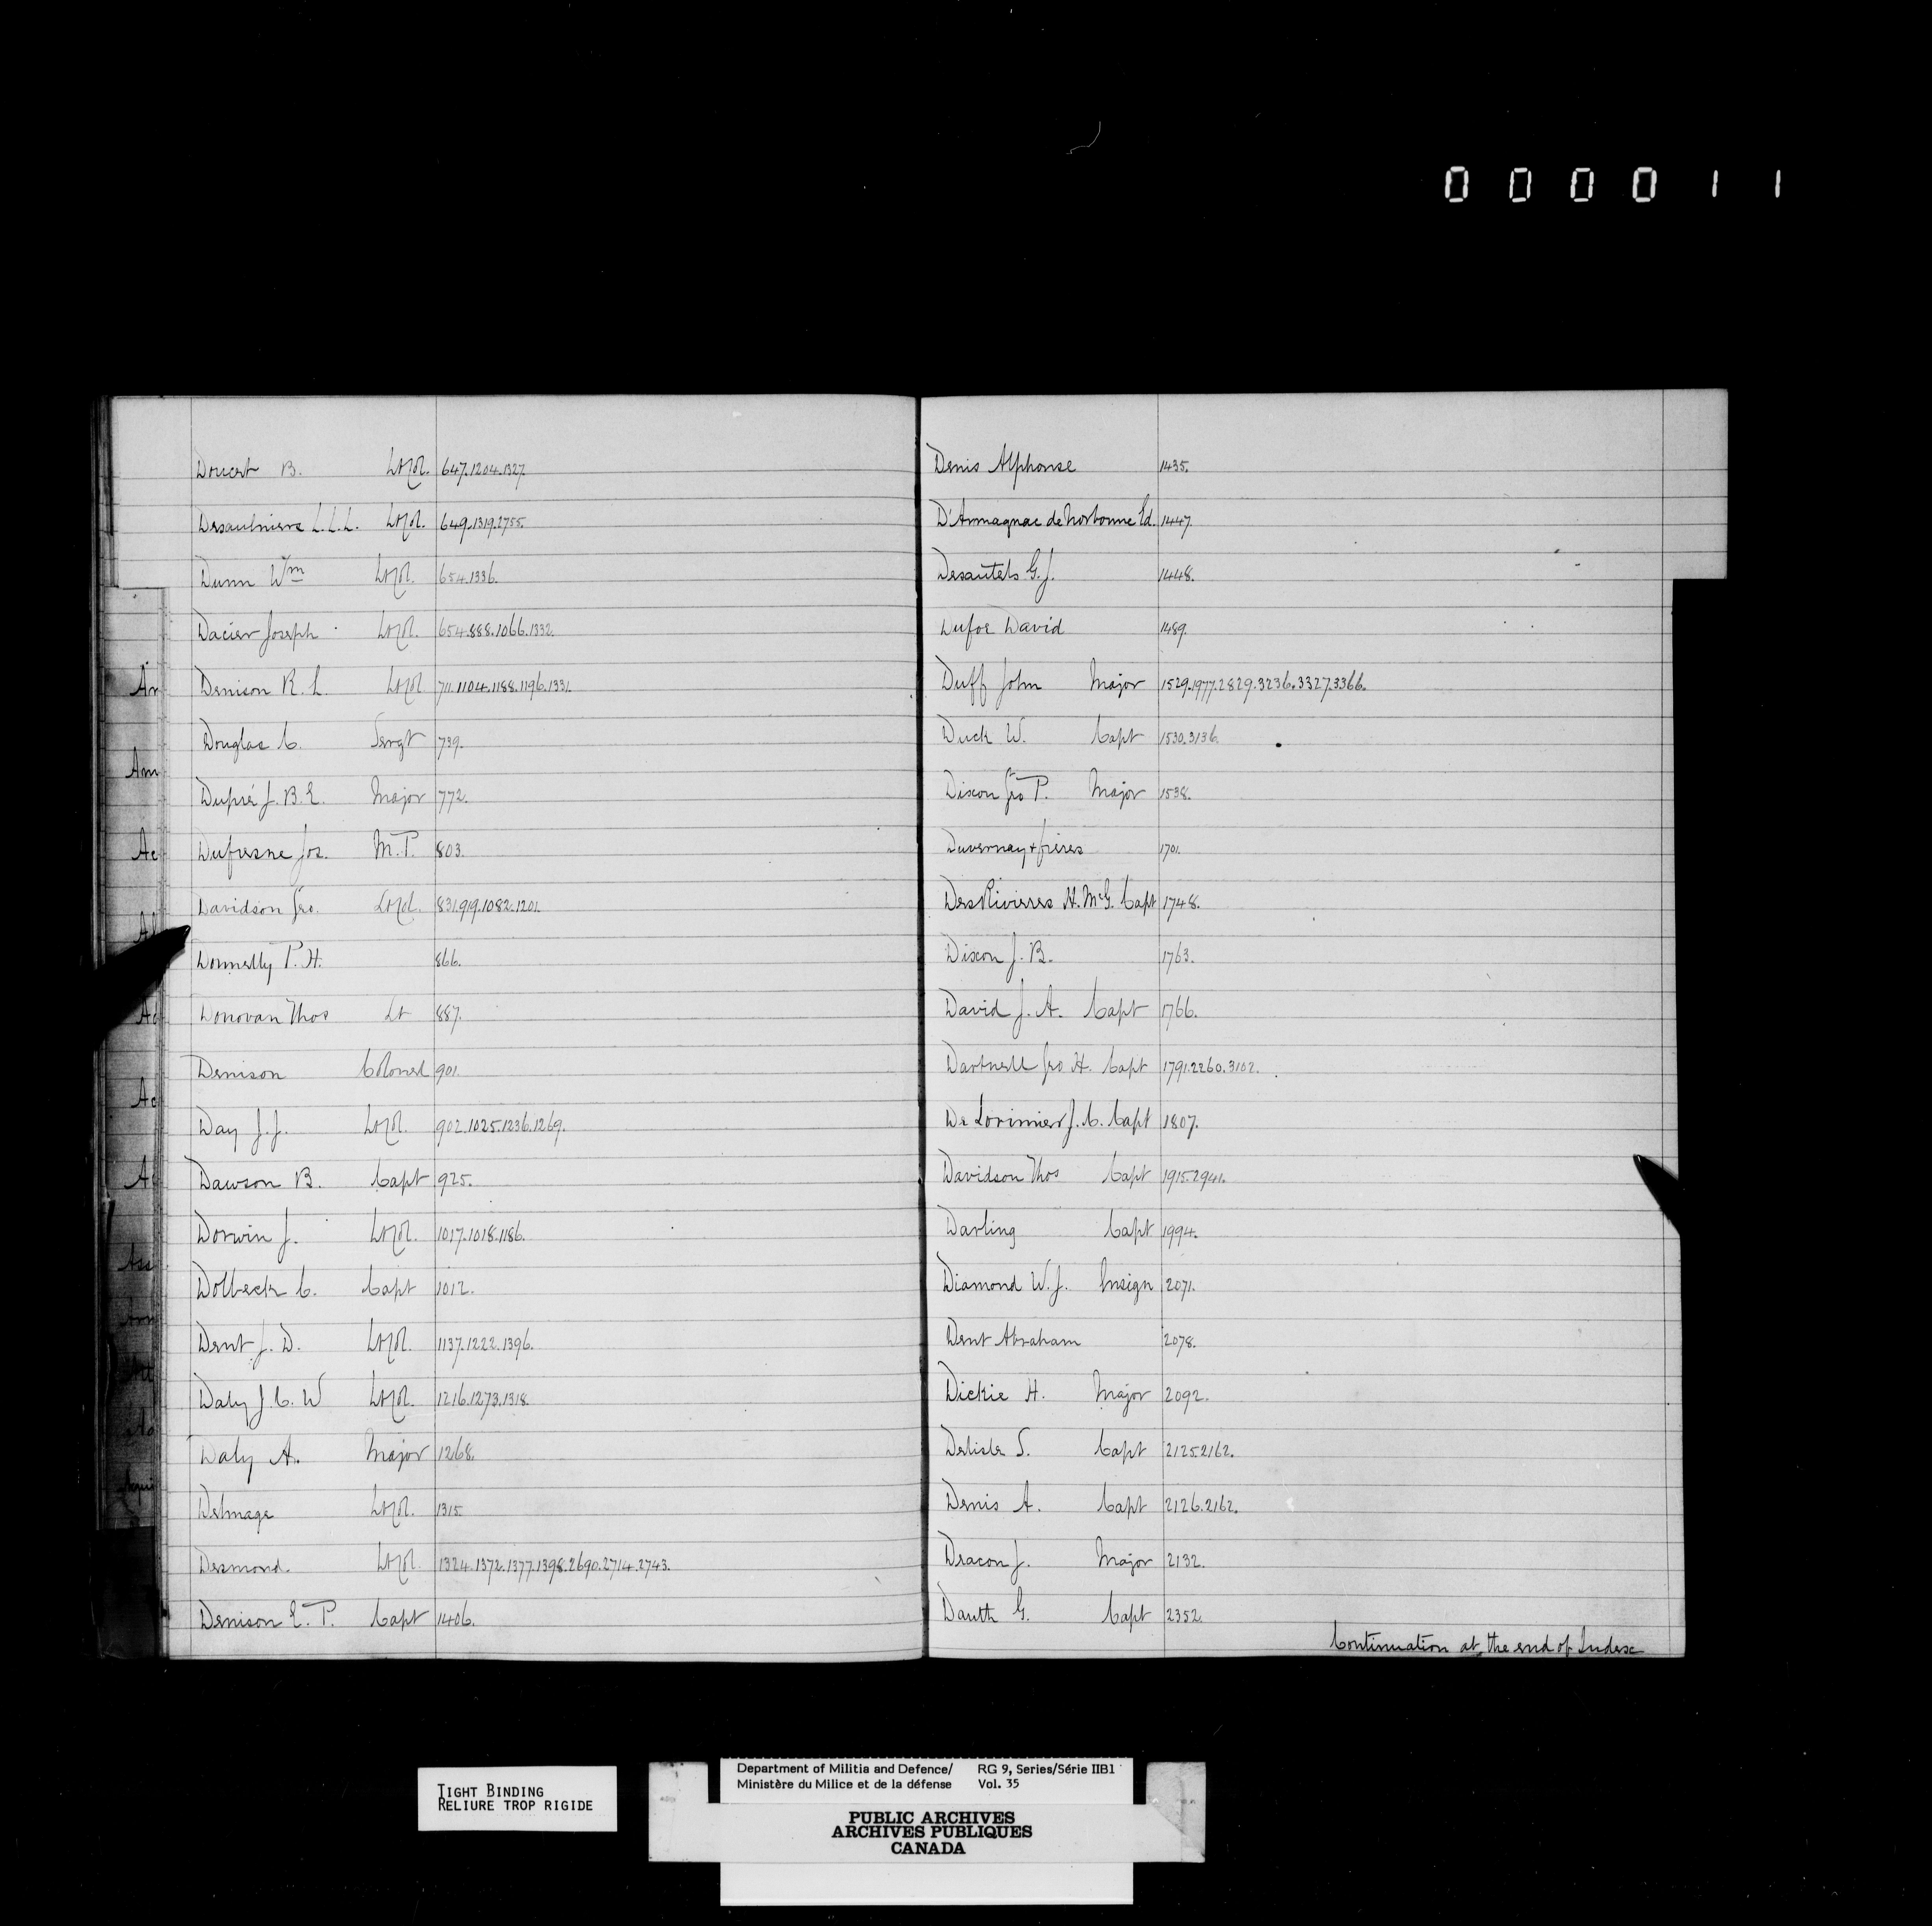 000011
Doucet B. Lt Col. 647.1204.1327.
Desaulniers L.L.L. Lt Col. 649.1319.2755.
Dunn Wm Lt Col. 654.1336.
Dacier Joseph Lt Col. 654.888.1066.1332.
Denison R. L. Lt Col 711.1104.1188.1196.1331.
Douglas C. Sergt 739.
Dupré J. B. E. Major 772.
Dufresne Jos. M.P. 803.
Davidson Geo. Lt Col. 831.919.1082.1201.
Donnelly P. H. 866.
Donovan Thos Lt 887.
Denison Colonel 901.
Day J. J. Lt Col. 902.1025.1236.1269.
Dawson B. Capt 925.
Dorwin J. Lt Col. 1017.1018.1186.
Dolbeck C. Capt 1012.
Dent J. D. Lt Col. 1137.1222.1396.
Daly J. C. W Lt Col. 1216.1273.1318.
Daly A. Major 1268.
Delmage Lt Col. 1315.
Desmond. Lt Col. 1324.1372.1377.1398.2690.2714.2743.
Denison E. P. Capt 1406.
Ar
Am
Ac
Al
Ad
Ac
Denis Alphonse 1435.
D'Armagnac de Norbonne Ed. 1447.
Desautels G. J. 1448.
Dufoe David 1489.
Duff John Major 1529.1977.2829.3236.3327.3366.
Duck W. Capt 1530.3136.
Dixon Geo P. Major 1538.
Duvernay & frères 1701.
DesRivieres H. McG. Capt 1748.
Dixon J. B. 1763.
David J. A. Capt 1766.
Dartnell Geo H. Capt 1791.2260.3102.
De Lorimier J. C. Capt 1807.
Davidson Thos Capt 1915.2941.
Darling Capt 1994.
Diamond W. J. Ensign 2071.
Dent Abraham 2078.
Dickie H. Major 2092.
Delisle S. Capt 2125.2162.
Denis A. Capt 2126.2162.
Deacon J. Major 2132.
Dauth G. Capt 2352.
Continuation at the end of Index
TIGHT BINDING
RELIURE TROP RIGIDE
Department of Militia and Defence/ RG 9, Series/Série IIB1
Ministère du Milice et de la défense Vol. 35
PUBLIC ARCHIVES
ARCHIVES PUBLIQUES
CANADA